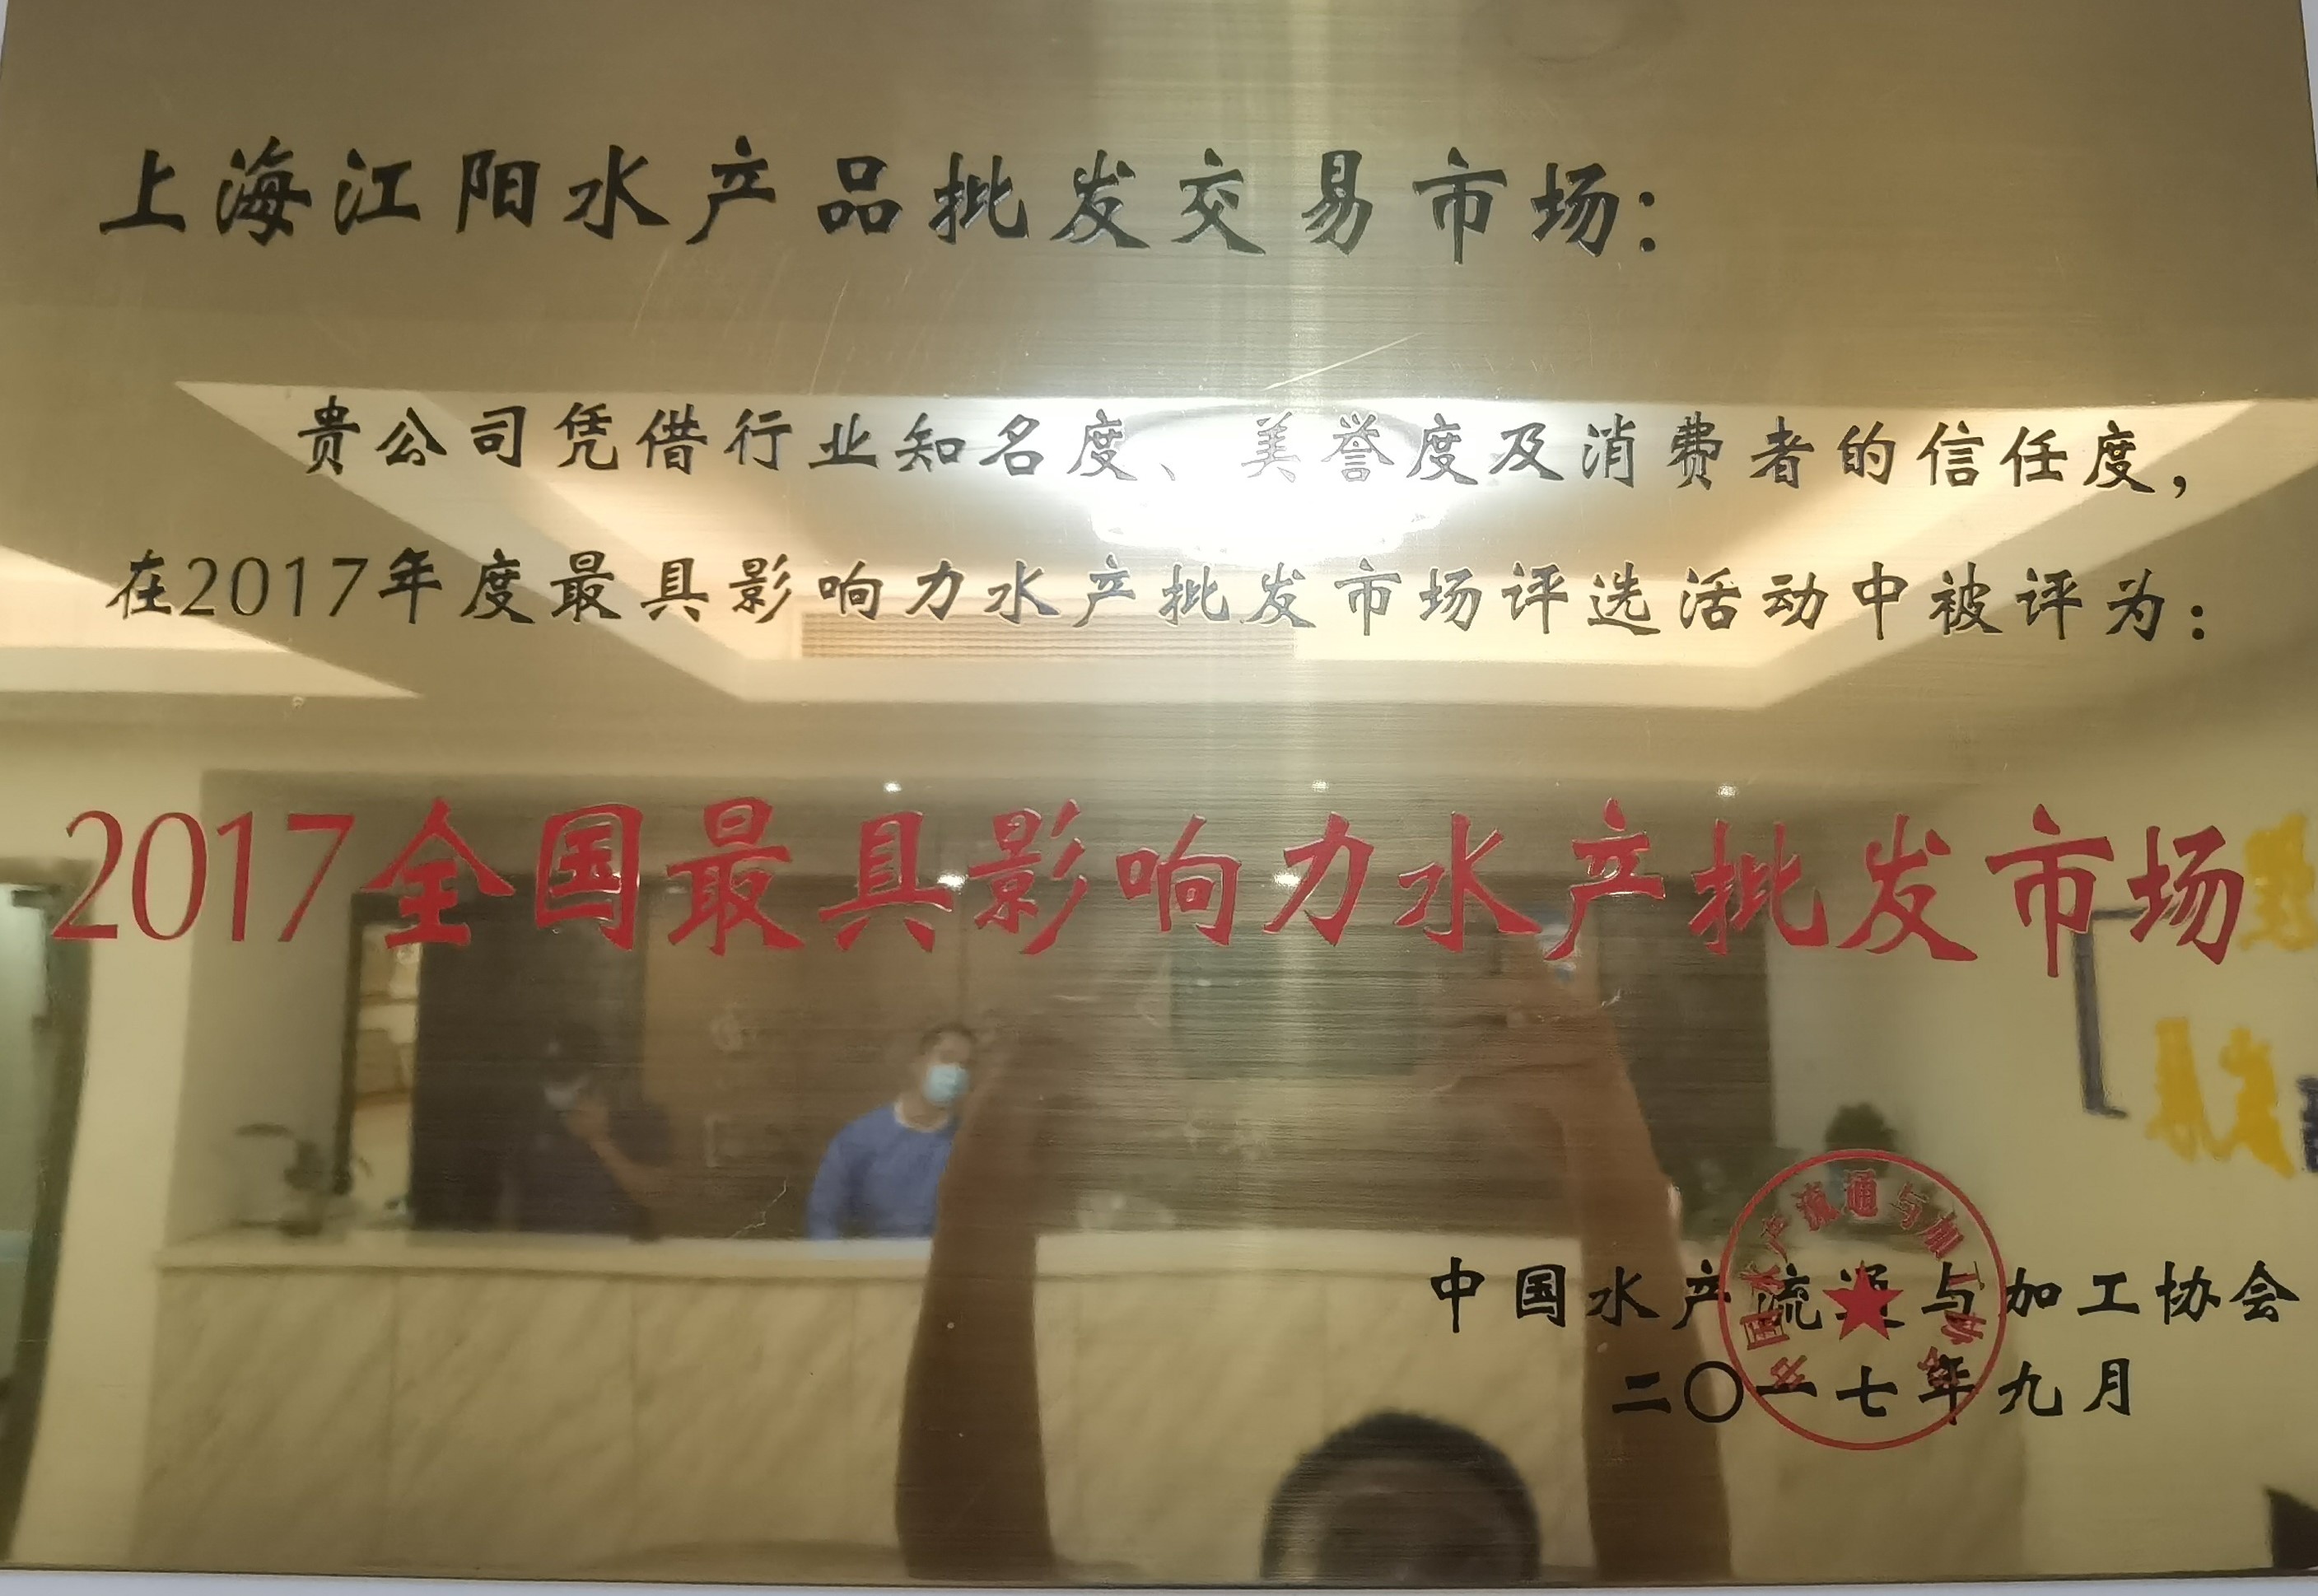 上海江阳水产品批发交易市场：
贵公司凭借行业知名度、美誉度及消费者的信任度，
在2017年度最具影响力水产批发市场评选活动中被评为：
2017全国最具影响力水产批发市场
中国水产流通与加工协会
二〇一七年九月